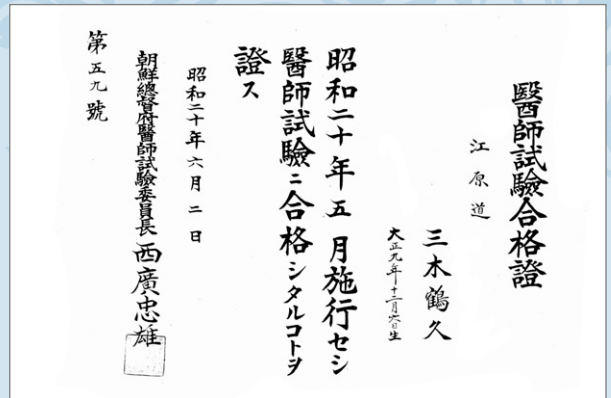 醫師試驗合格證
江原道
三木鶴久
大正九年十二月六日生
昭和二十年五月施行セシ
醫師試驗ニ合格シタルコトヲ
證ス
昭和二十年六月二日
朝鮮總督府醫師試驗委員長 西廣忠雄
第五九號